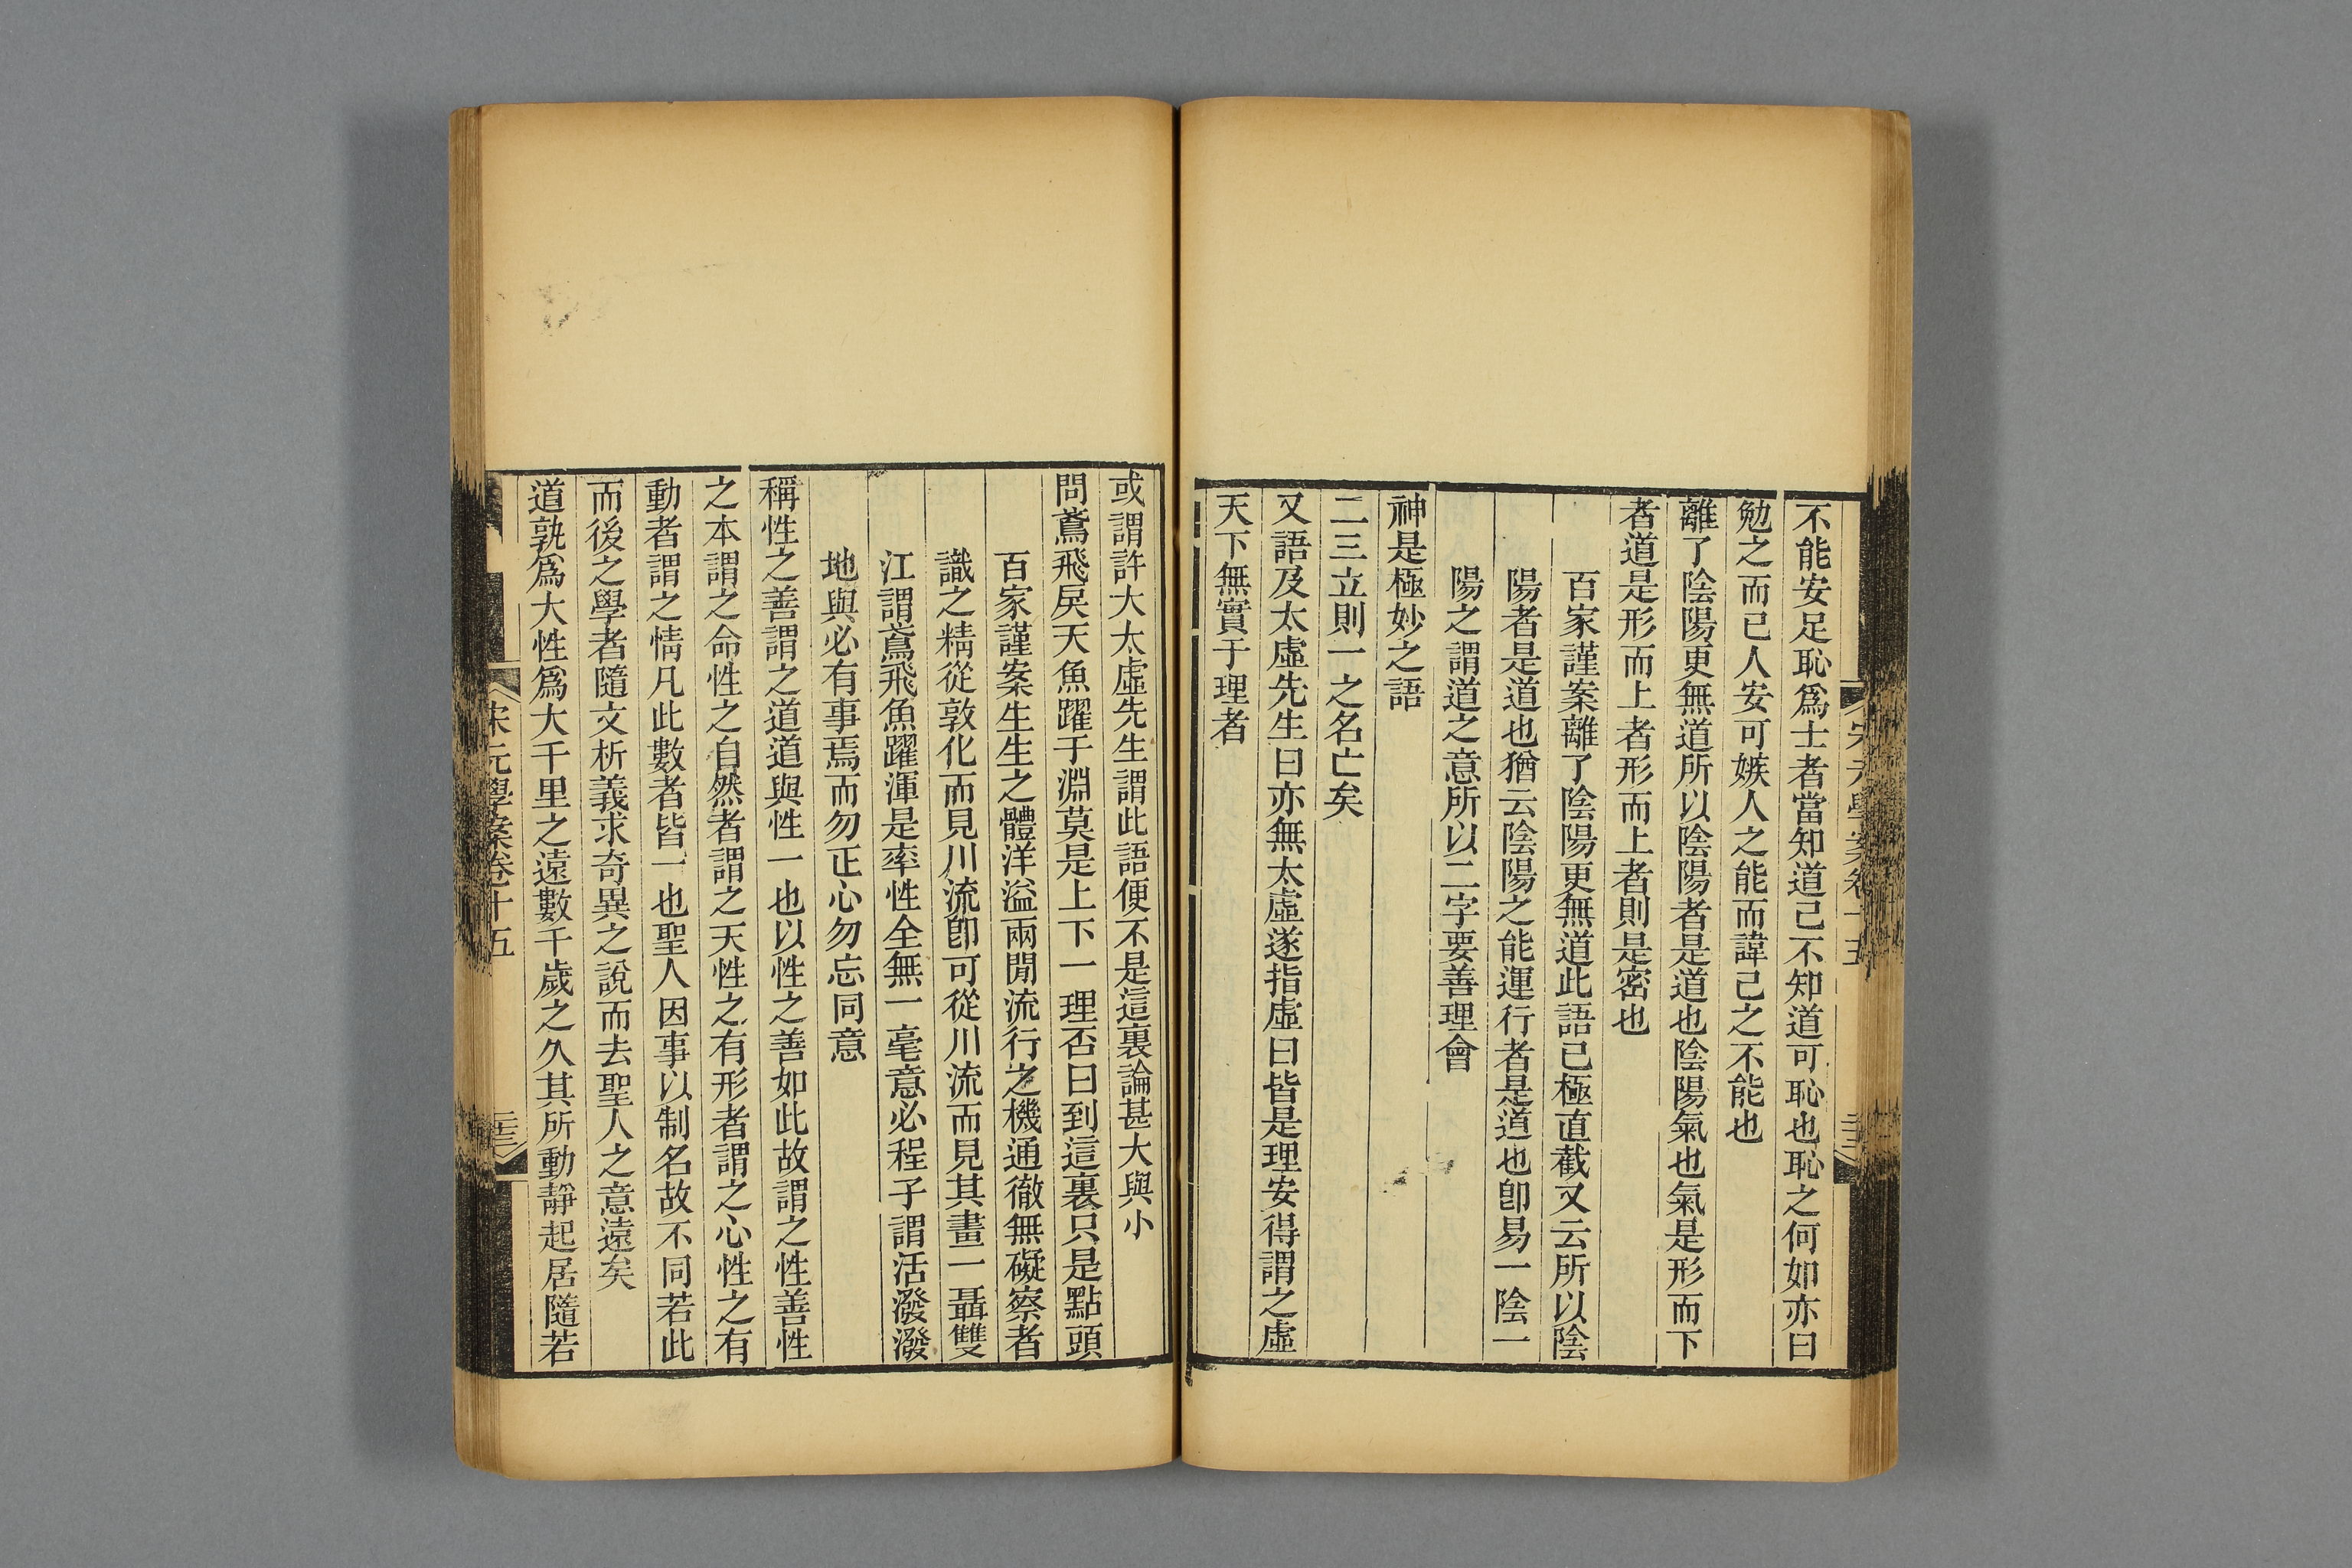 不能安足恥爲士者當知道己不知道可恥也恥之何如亦曰
勉之而已人安可嫉人之能而諱己之不能也
離了陰陽更無道所以陰陽者是道也陰陽氣也氣是形而下
者道是形而上者形而上者則是密也
百家謹案離了陰陽更無道此語已極直截又云所以陰
陽者是道也猶云陰陽之能運行者是道也卽易一陰一
陽之謂道之意所以二字要善理會
神是極妙之語
二三立則一之名亡矣
又語及太虛先生曰亦無太虛遂指虛曰皆是理安得謂之虛
天下無實于理者
或謂許大太虛先生謂此語便不是這裏論甚大與小
問鳶飛戾天魚躍于淵莫是上下一理否曰到這裏只是點頭
百家謹案生生之體洋溢兩閒流行之機通徹無礙察者
識之精從敦化而見川流卽可從川流而見其畫一聶雙
江謂鳶飛魚躍渾是率性全無一毫意必程子謂活潑潑
地與必有事焉而勿正心勿忘同意
稱性之善謂之道道與性一也以性之善如此故謂之性善性
之本謂之命性之自然者謂之天性之有形者謂之心性之有
動者謂之情凡此數者皆一也聖人因事以制名故不同若此
而後之學者隨文析義求奇異之說而去聖人之意遠矣
道孰爲大性爲大千里之遠數千歲之久其所動靜起居隨若
宋元學案卷十五